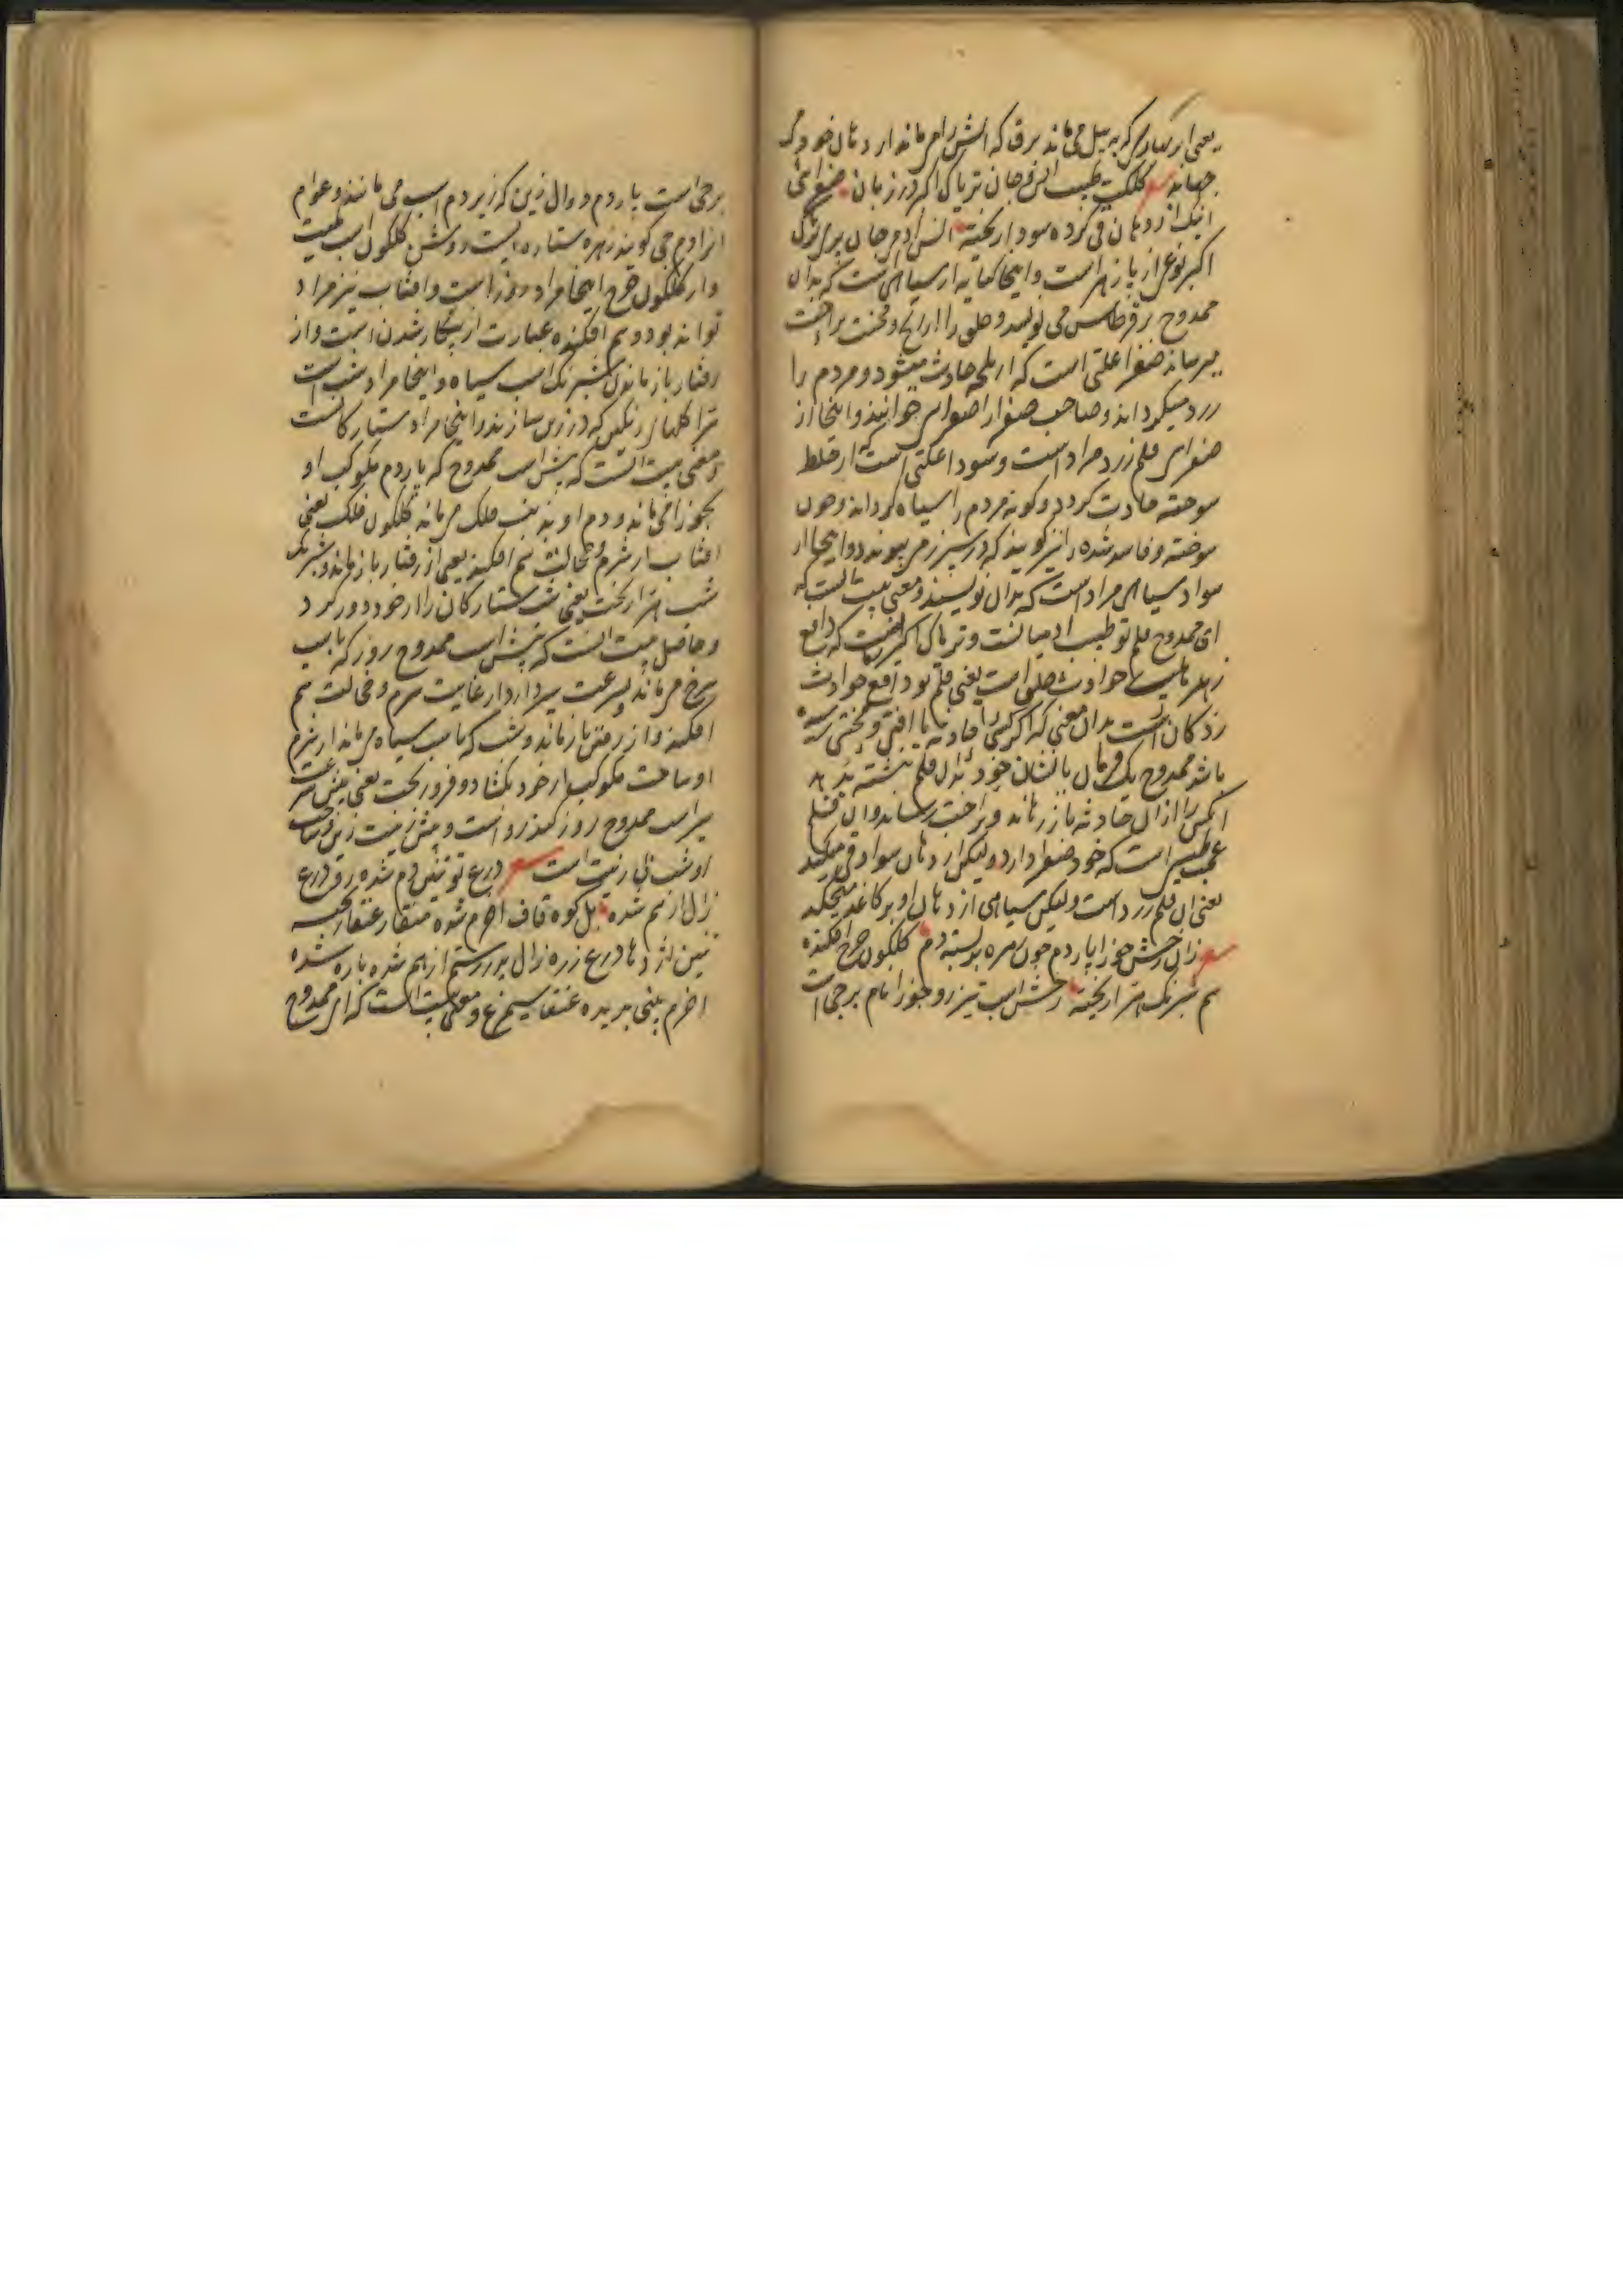 یعنی ابر بهاری که به پیل می ماند برق که آتش را می ماند از دهان خود می
جهاند کلکت طبیب انس و جان تریاک اکبر در زبان صفرائی
اینک از دهان قی کرده سودا ریخته انس آدمی جان پری تریاک
اکبر نوعی از پازهر است و اینجا کنایه از سیاهی است که بدان
ممدوح بر قرطاس می نویسد و خلق را از رنج و محنت براحت
میرساند صفرا علتی است که از تلخه حادث میشود و مردم را
زرد میگرداند و صاحب صفرا را صفرائی خوانند و اینجا از
صفرائی قلم زرد مراد است و سودا علتی است که از خلط
سوخته حادث گردد و گونه مردم را سیاه گرداند و خون
سوخته و فاسد شده را نیز گویند که در سپرز می پیوندد و اینجا از
سواد سیاهی مراد است که بدان نویسند و معنی بیت آنست که
ای ممدوح قلم تو طبیب آدمیانست و تریاک اکبر که دافع
زهر حوادث خلق است یعنی قلم تو دافع حوادث
است بدان معنی که اگر کسی را حادثه یا آفتی و سختی رسیده
باشد ممدوح یک فرمان با نشان خود بدان قلم نبشته بدهد
آنکس را از آن حادثه باز رهاند و براحت رساند و آن قلم
عجب طبیبی است که خود صفرا دارد و لیکن از دهان سوادی قی میکند
یعنی آن قلم زرد است ولیکن سیاهی از دهان او بر کاغذ میچکد
زان رخش جوزا پاردم چون زهره بربسته دم گلگون چرخ افکنده
سم شبرنگ هرا ریخته رخش اسب تیزرو جوزا نام برجی است
برجی است پاردم دوال زین که زیر دم اسب می مانند و عوام
آنرا دمچی گویند زهره ستاره ایست روشن گلگون اسب کمیت
و از گلگون چرخ اینجا مراد روز است و آفتاب نیز مراد
تواند بود و سم افکنده عبارت از بیکار شدن است و از
رفتار باز ماندن شبرنگ اسب سیاه و اینجا مراد شب است
هرا گلهای رنگین که در زین سازند و اینجا مراد ستارگانست
و معنی بیت آنست که پیش اسب ممدوح که پاردم مکوکب او
بجوزا می ماند و دم او بذنب فلک می ماند گلگون فلک یعنی
آفتاب از شرم و خجالت سم افکند یعنی از رفتار باز ماند و شبرنگ
شب هرا ریخت یعنی شب ستارگان را از خود دور کرد
و حاصل بیت آنست که پیش اسب ممدوح روز که باسب
سرخ می ماند و سرعت سیر دارد از غایت شرم و خجالت سم
افکند و از رفتن باز ماند و شب که باسب سیاه می ماند از شرم
او ساخت مکوکب از خود بگشاد و فرو ریخت یعنی پیش سرعت
سیر اسب ممدوح روز کندرو است و پیش زینت زین و ساخت
او شب بی زینت است درع تو تنین دم شده رو درع
زال از سم شده بل کوه قاف اخرم شده منقار عنقا ریخته
تنین اژدها درع زره زال پدر رستم از هم شده پاره شده
اخرم بینی بریده عنقا سیمرغ و معنی بیت آنست که ای ممدوح